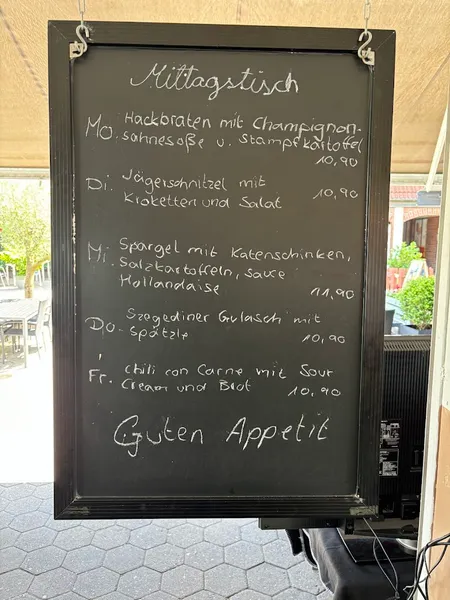 Mittagstisch
Mo. Hackbraten mit Champignon-
sahnesoße u. Stampfkartoffel
10,90
Di. Jägerschnitzel mit 10,90
Kroketten und Salat
Mi. Spargel mit Katenschinken,
Salzkartoffeln, Sauce
Hollandaise 11,90
Do. Szegediner Gulasch mit
Spätzle 10,90
Fr. Chili con Carne mit Sour
Cream und Brot 10,90
Guten Appetit